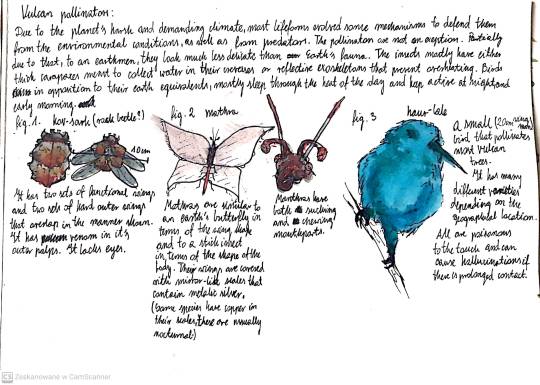 Vulcan pollinators:
Due to the planet's harsh and demanding climate, most lifeforms evolved some mechanisms to defend them
from the environmental conditions, as well as from predators. The pollinators are not an exception. Partially
due to that, to an earthmen, they look much less delicate than our Earth's fauna. The insects mostly have either
thick carapaces meant to collect water in their crevices or reflective exoskeletons that prevent overheating. Birds
in opposition to their earth equivalents, mostly sleep through the heat of the day and keep active at night and
early morning.
fig. 1. kov-sark (rock beetle?)
10cm
It has two sets of functional wings
and two sets of hard outer wings
that overlap in the manner shown.
It has venom in it's
outer palps. It lacks eyes.
fig. 2 mathra
Mathras are similar to
an earth's butterfly in
terms of the wing shape
and to a stick insect
in terms of the shape of the
body. Their wings are covered
with mirror-like scales that
contain metalic silver.
(Some species have copper in
their scales, these are usually
nocturnal)
Manthras have
both sucking
and chewing
mouthparts.
fig. 3 haur-
a small (20cm wing
bird that pollinates
most vulcan
trees.
It has many
different varieties
depending on the
geographical location.
All are poisonous
to the touch and can
cause hallucinations if
there is prolonged contact.
CS Zeskanowane w CamScanner